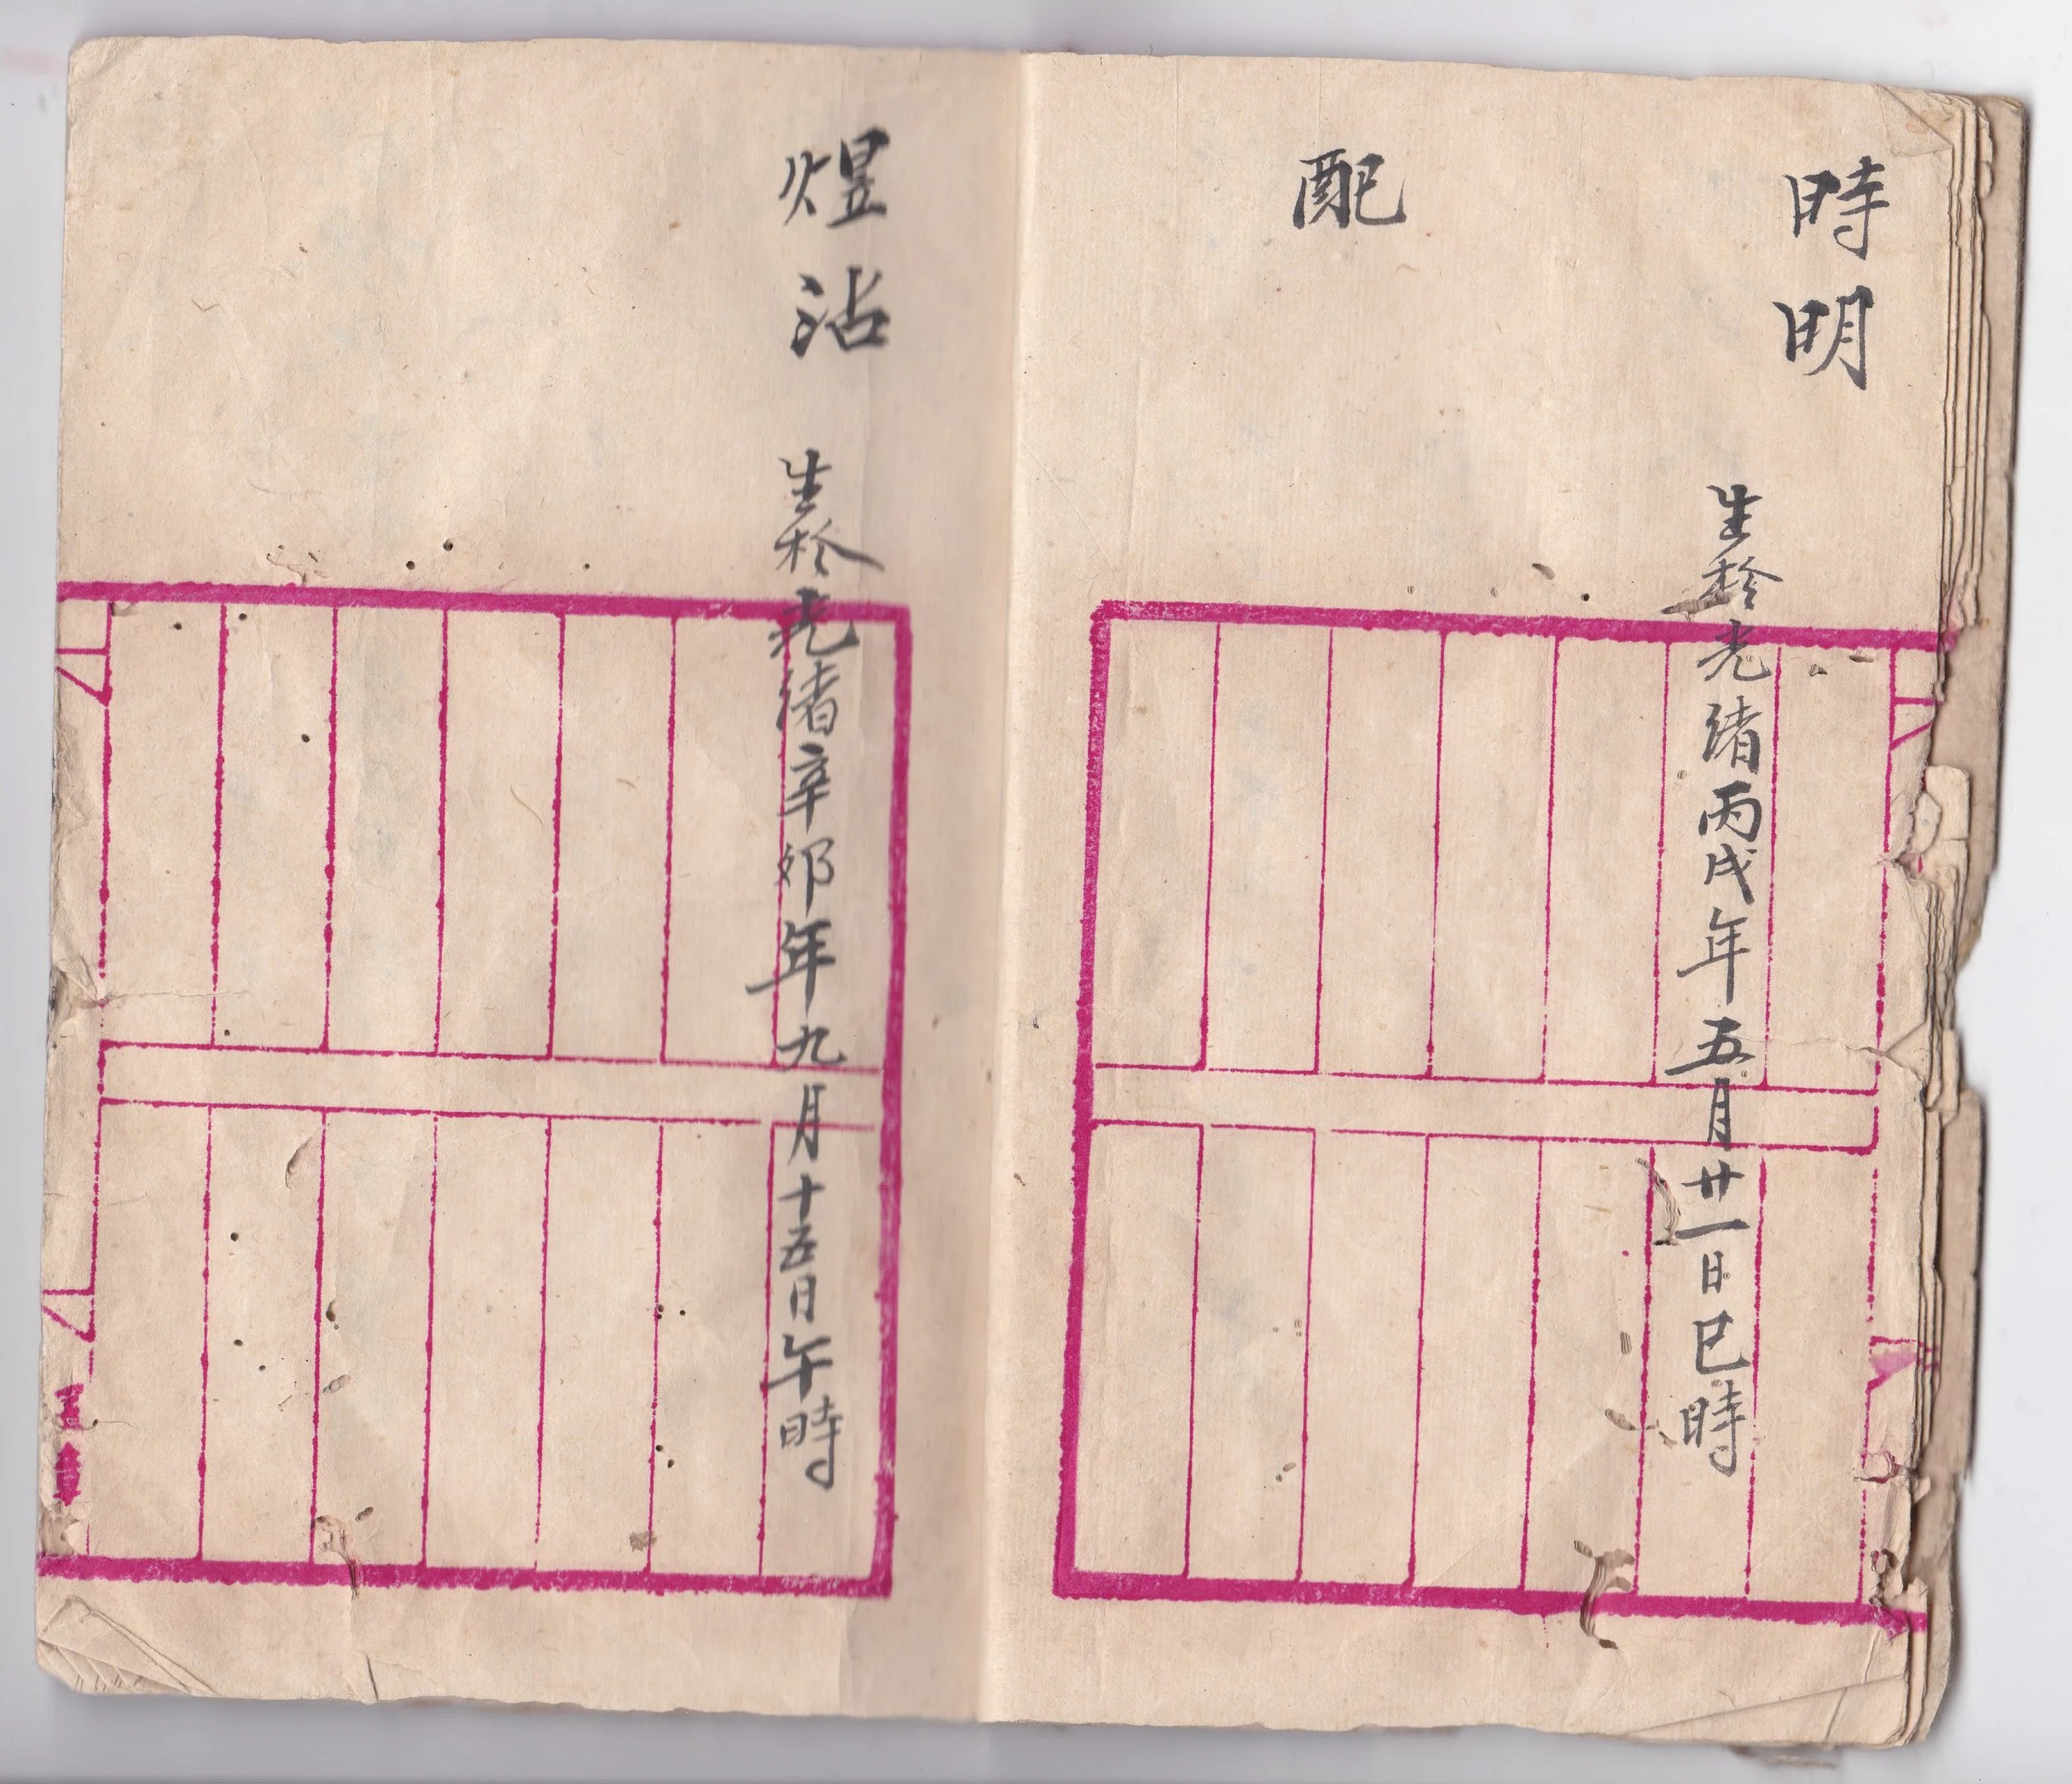 時明
生於光緒丙戌年五月廿一日巳時
配
煜沾
生於光緒辛卯年九月十五日午時